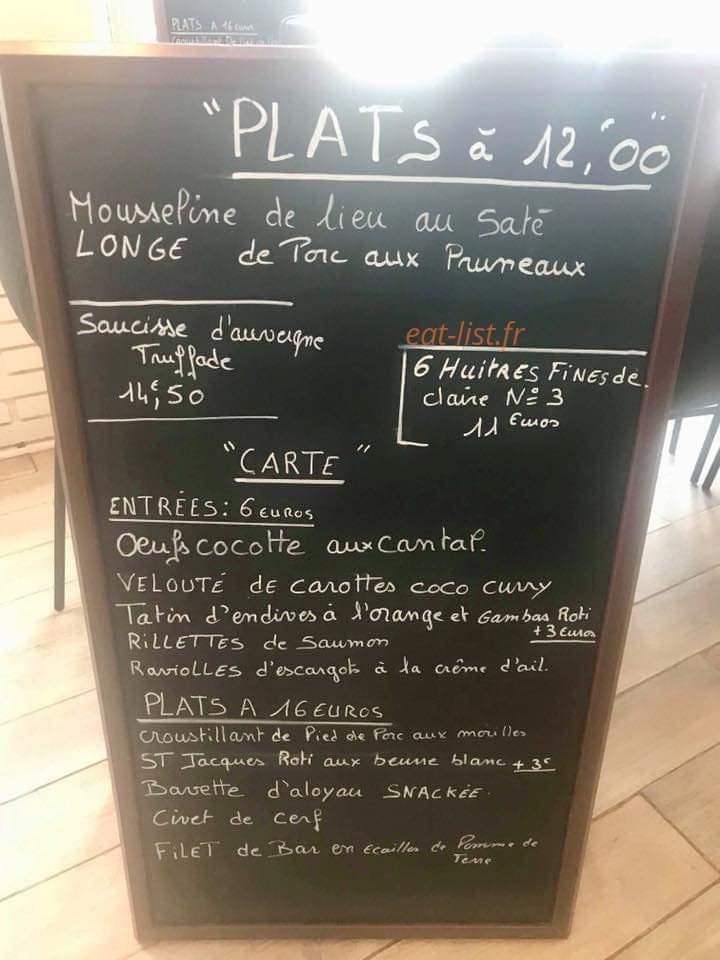 PLATS A 16 Euros
"PLATS à 12,€00"
Mousseline de lieu au Saté
LONGE de Porc aux Pruneaux
Saucisse d'auvergne
Truffade
14€,50
eat-list.fr
6 HUITRES FINES de
claire N° 3
11 Euros
"CARTE"
ENTRÉES: 6 EUROS
Oeufs cocotte aux cantal.
VELOUTÉ de carottes coco curry
Tatin d'endives à l'orange et Gambas Roti
+3 Euros
RILLETTES de Saumon
Raviolles d'escargots à la crème d'ail.
PLATS A 16 EUROS
croustillant de Pied de Porc aux morilles
ST Jacques Roti aux beurre blanc +3€
Bavette d'aloyau SNACKÉE.
Civet de cerf
FILET de Bar en écailles de Pomme de
Terre